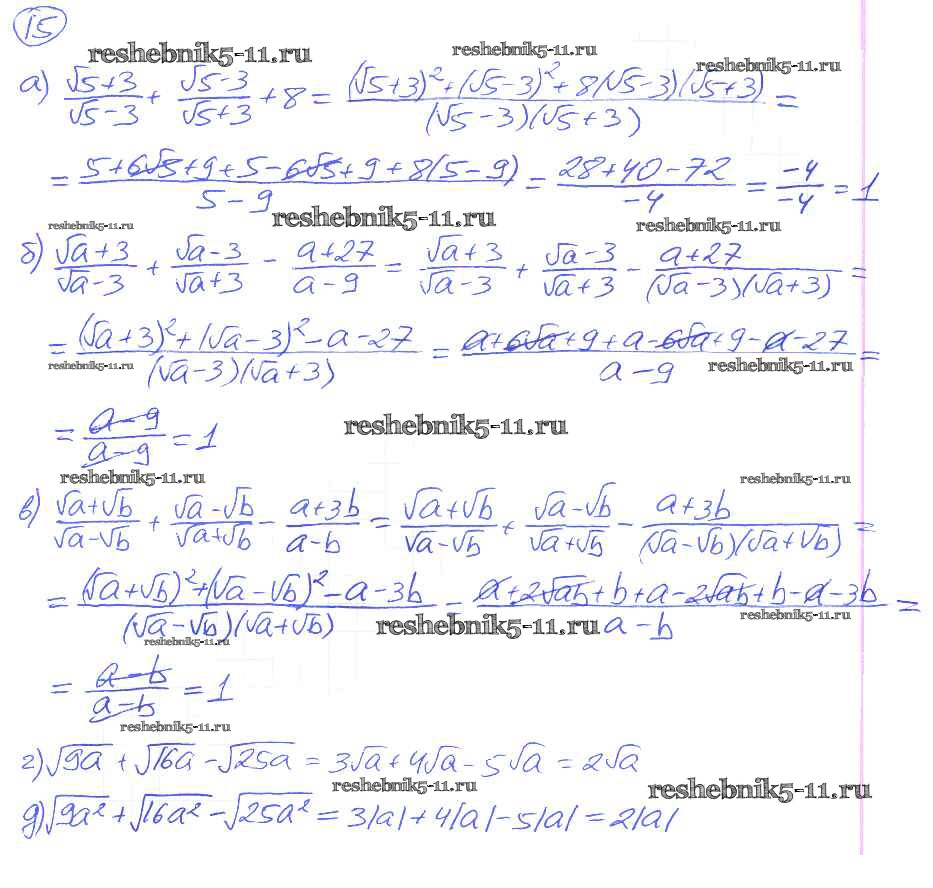 15
reshebnik5-11.ru reshebnik5-11.ru reshebnik5-11.ru
а) (√5+3)/(√5-3) + (√5-3)/(√5+3) + 8 = ((√5+3)²+(√5-3)²+8(√5-3)(√5+3))/((√5-3)(√5+3)) =
= (5+6√5+9+5-6√5+9+8(5-9))/(5-9) = (28+40-72)/(-4) = (-4)/(-4) = 1
reshebnik5-11.ru reshebnik5-11.ru reshebnik5-11.ru
б) (√a+3)/(√a-3) + (√a-3)/(√a+3) - (a+27)/(a-9) = (√a+3)/(√a-3) + (√a-3)/(√a+3) - (a+27)/((√a-3)(√a+3)) =
= ((√a+3)²+(√a-3)²-a-27)/((√a-3)(√a+3)) = (a+6√a+9+a-6√a+9-a-27)/(a-9) =
reshebnik5-11.ru reshebnik5-11.ru
= (a-9)/(a-9) = 1
reshebnik5-11.ru
reshebnik5-11.ru reshebnik5-11.ru
в) (√a+√b)/(√a-√b) + (√a-√b)/(√a+√b) - (a+3b)/(a-b) = (√a+√b)/(√a-√b) + (√a-√b)/(√a+√b) - (a+3b)/((√a-√b)(√a+√b)) =
= ((√a+√b)²+(√a-√b)²-a-3b)/((√a-√b)(√a+√b)) - (a+2√ab+b+a-2√ab+b-a-3b)/(a-b) =
reshebnik5-11.ru reshebnik5-11.ru reshebnik5-11.ru
= (a-b)/(a-b) = 1
reshebnik5-11.ru
г) √9a + √16a - √25a = 3√a + 4√a - 5√a = 2√a
reshebnik5-11.ru reshebnik5-11.ru
д) √9a² + √16a² - √25a² = 3|a| + 4|a| - 5|a| = 2|a|